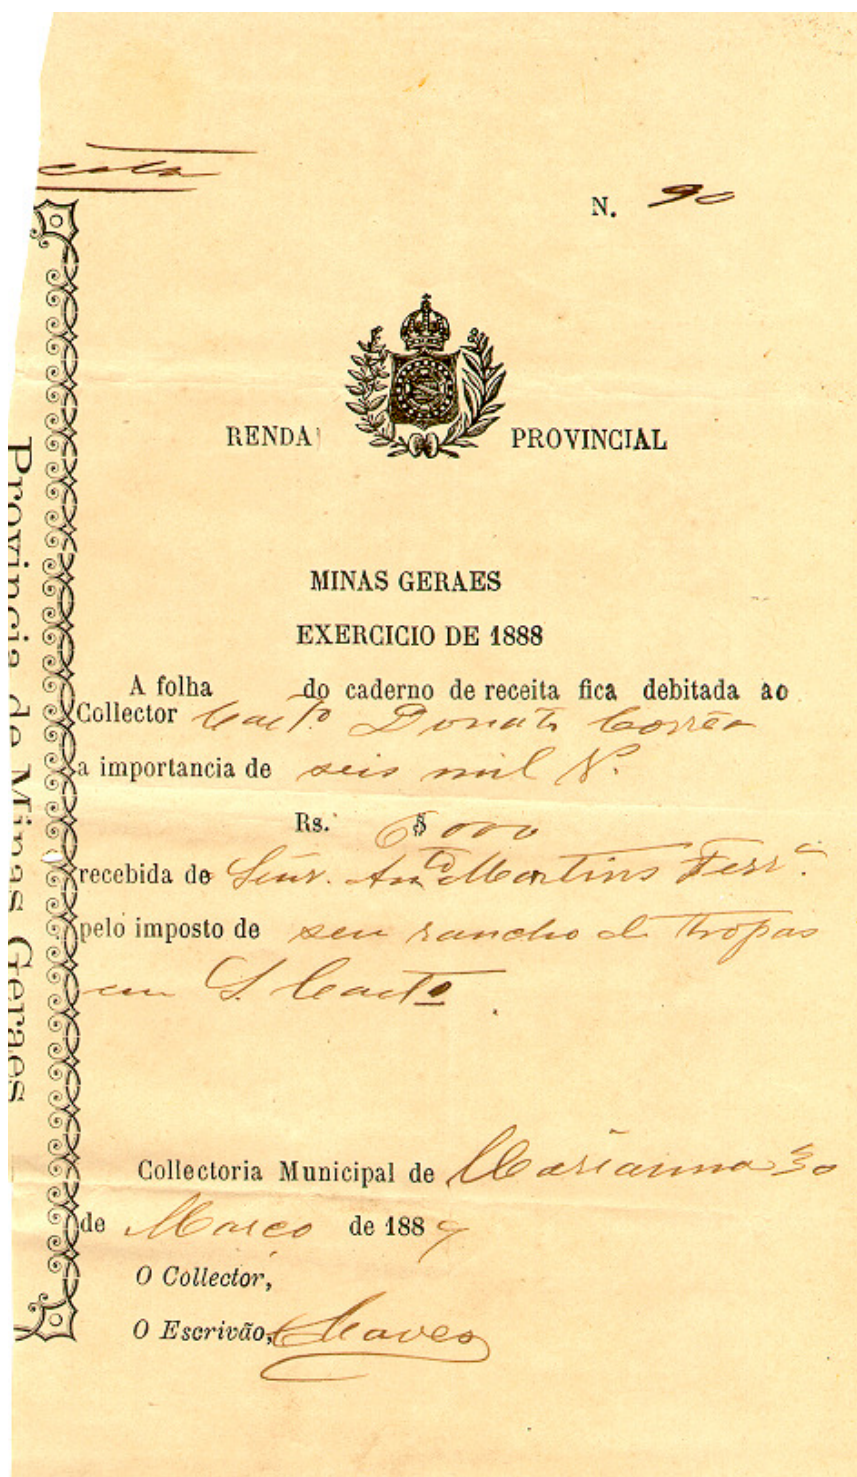 N. 90
RENDA PROVINCIAL
Provincia de Minas Geraes
MINAS GERAES
EXERCICIO DE 1888
A folha do caderno de receita fica debitada ao
Collector Caetº Donato Corrêa
a importancia de seis mil
Rs. 6$000
recebida do Senr. Antº Martins Ferrª
pelo imposto de seu rancho de tropas
em S. Caetº
Collectoria Municipal de Marianna 30
de Março de 1889
O Collector,
O Escrivão, Chaves